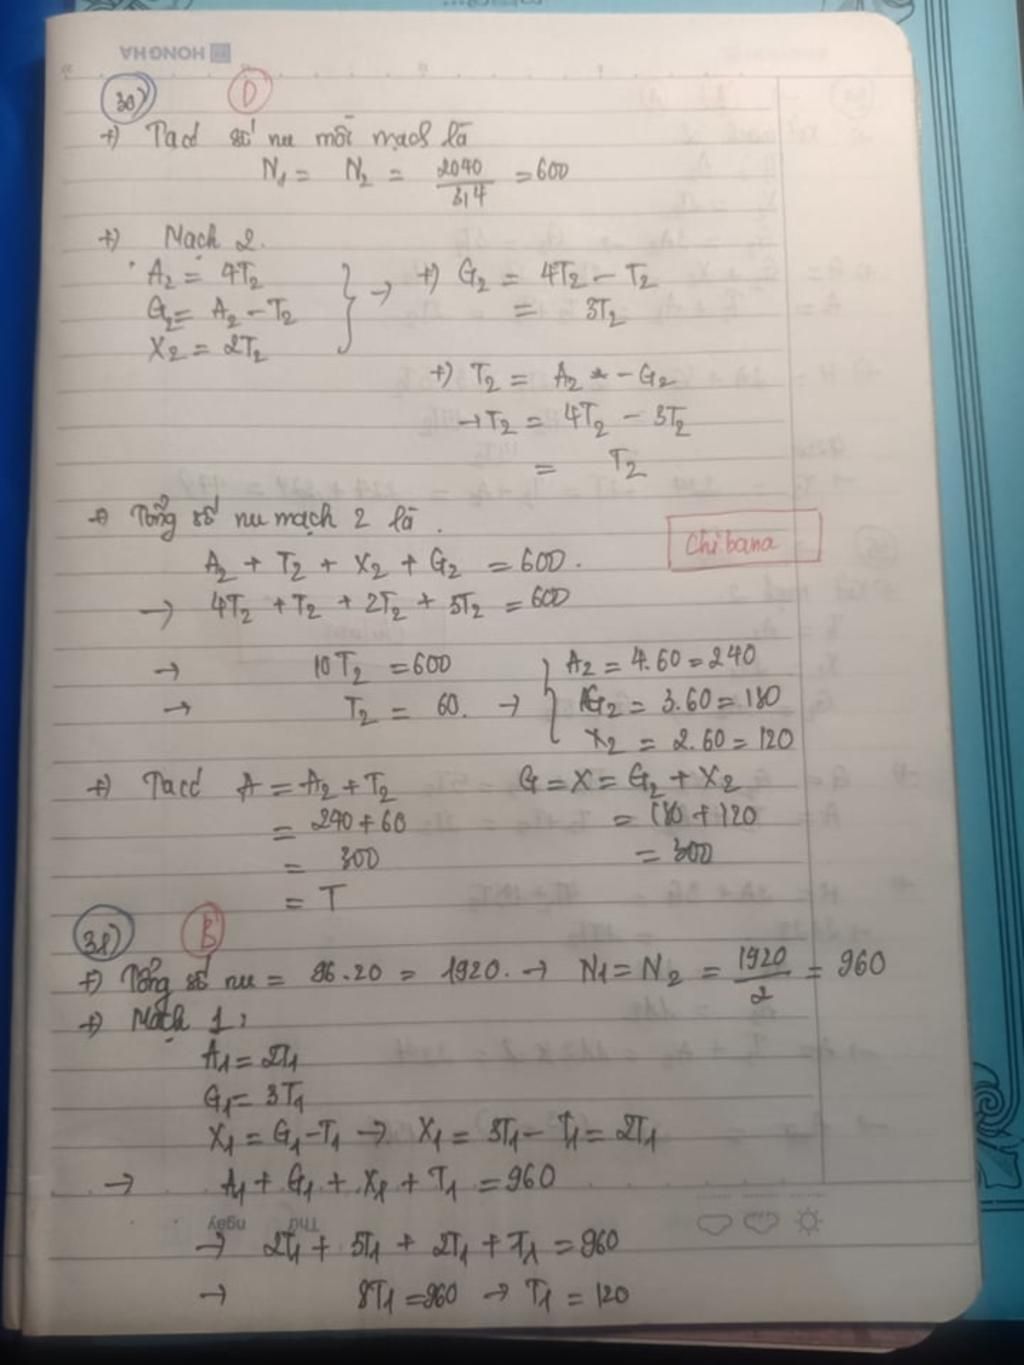 HONG HA
30) D
+) Ta có số nu mỗi mạch là
N1 = N2 = 2040 / 3,4 = 600
+) Mạch 2.
A2 = 4T2
G2 = A2 - T2
X2 = 2T2
} → +) G2 = 4T2 - T2
= 3T2
+) T2 = A2 - G2
→ T2 = 4T2 - 3T2
= T2
+) Tổng số nu mạch 2 là.
Chibana
A2 + T2 + X2 + G2 = 600.
→ 4T2 + T2 + 2T2 + 3T2 = 600
→ 10T2 = 600
→ T2 = 60. →
{ A2 = 4.60 = 240
G2 = 3.60 = 180
X2 = 2.60 = 120
+) Ta có A = A2 + T2
= 240 + 60
= 300
= T
G = X = G2 + X2
= 180 + 120
= 300
31) B
+) Tổng số nu = 96.20 = 1920. → N1 = N2 = 1920 / 2 = 960
+) Mạch 1:
A1 = 2T1
G1 = 3T1
X1 = G1 - T1 → X1 = 3T1 - T1 = 2T1
→ A1 + G1 + X1 + T1 = 960
Thứ ngày
→ 2T1 + 3T1 + 2T1 + T1 = 960
→ 8T1 = 960 → T1 = 120